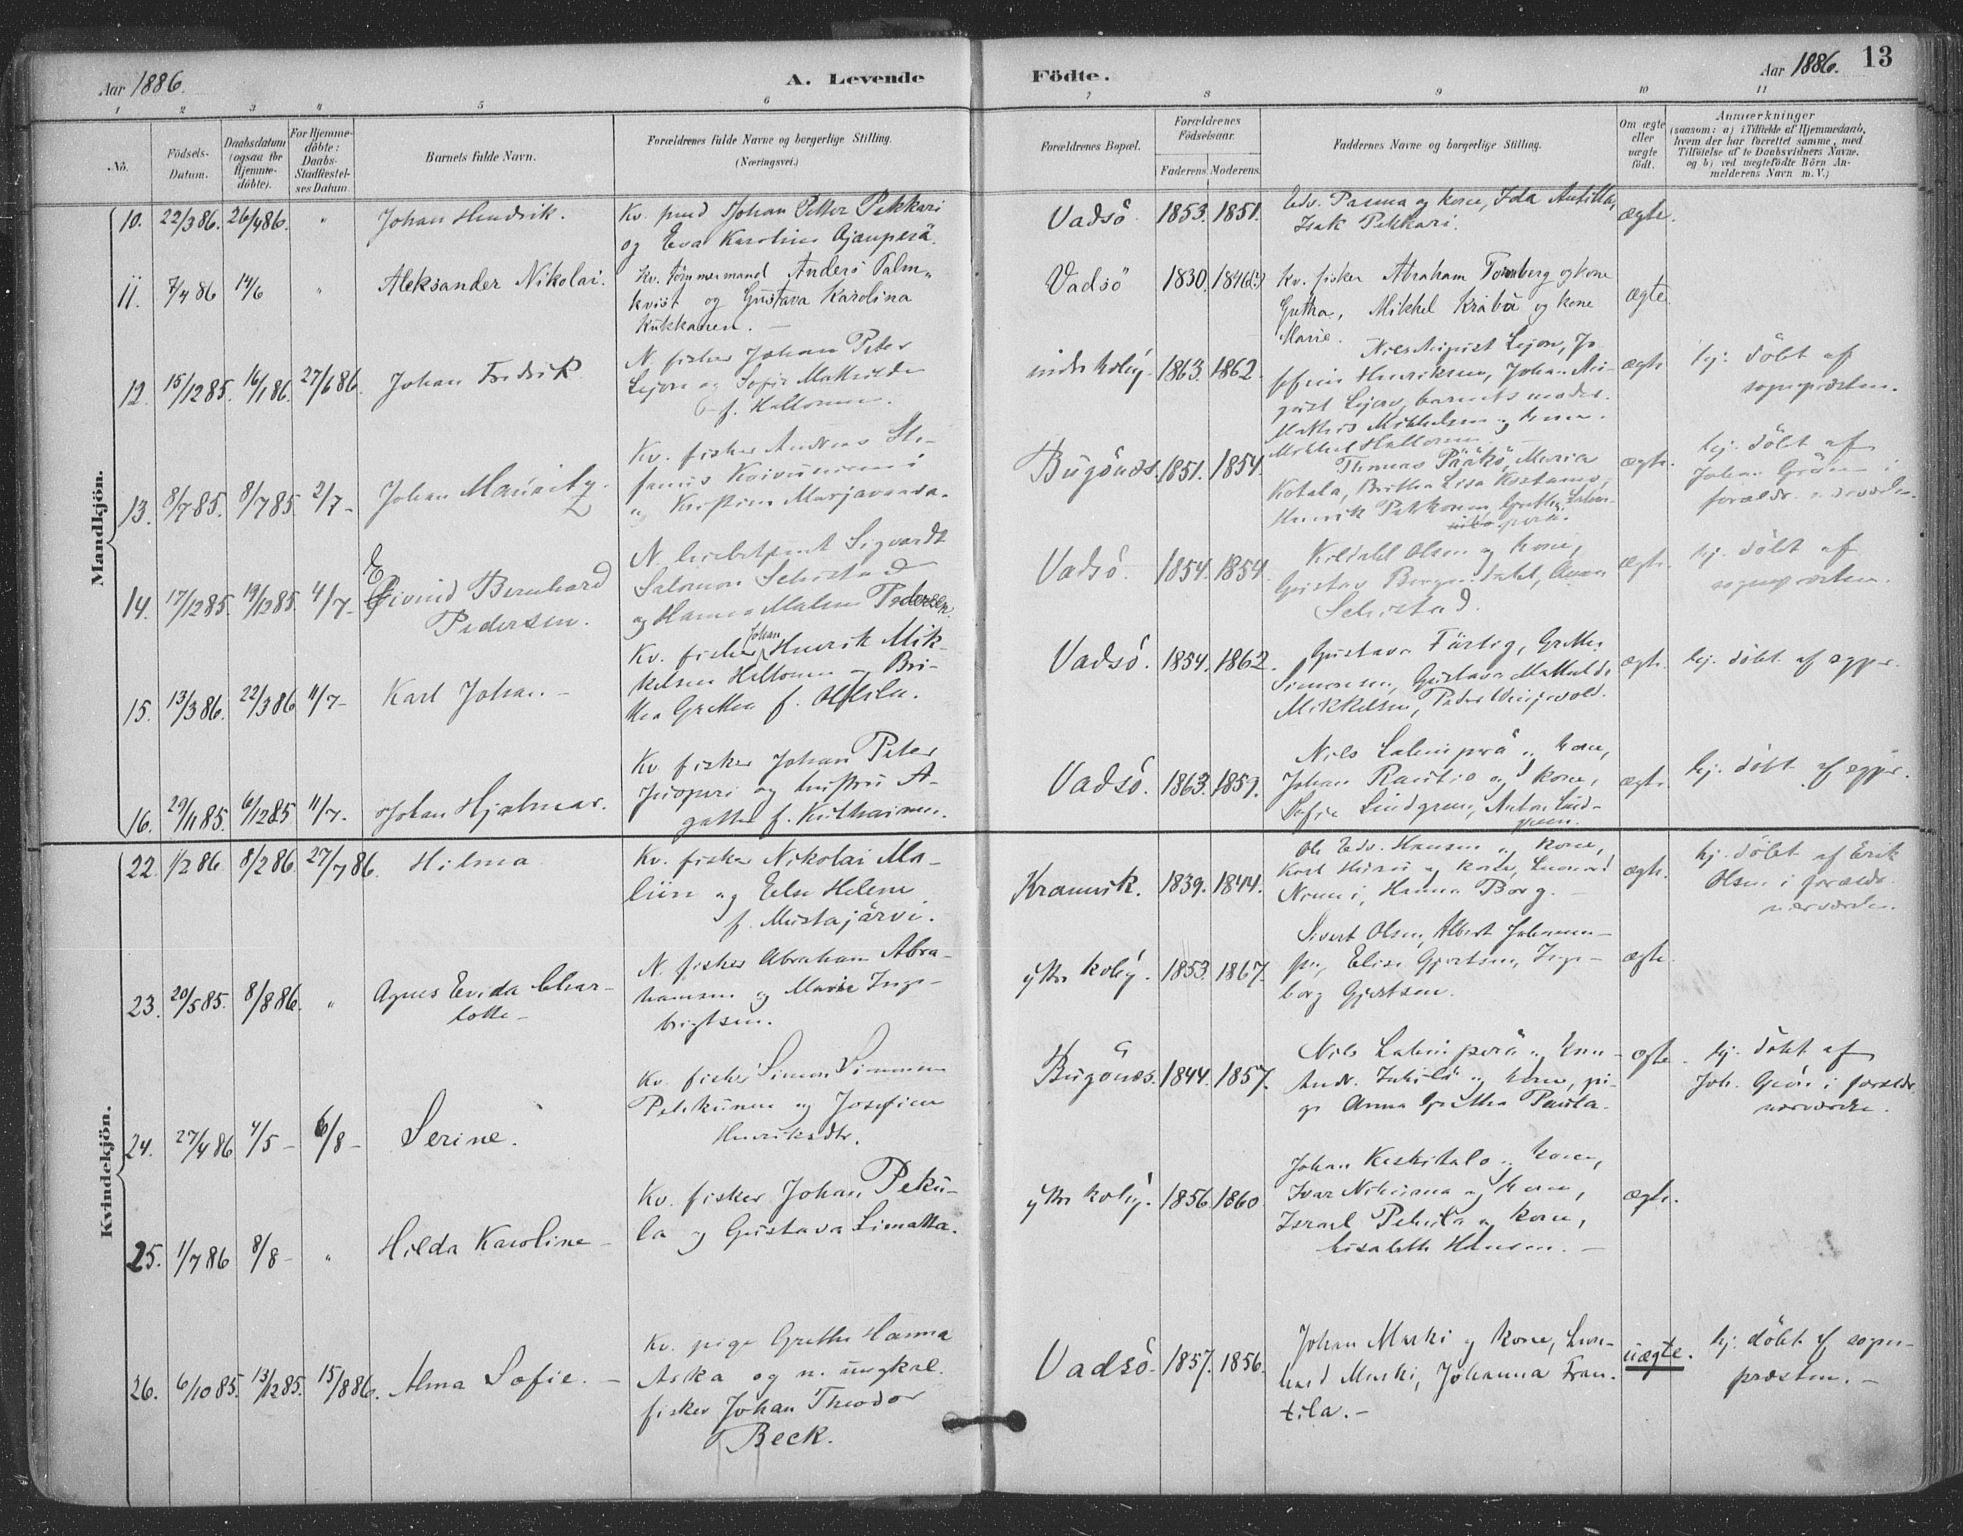 Aar 1886. A. Levende
Födte. Aar 1886. 13
1 2 3 4 5 6
7 8 9 10 11
No.
Födsels-
Datum.
Daabsdatum
(ogsaa for
Hjemme-
döbte).
For Hjemme-
döbte:
Daabs-
Stadfæstel-
ses Datum.
Barnets fulde Navn.
Forældrenes fulde Navne og borgerlige Stilling.
(Næringsvei.)
Forældrenes Bopæl.
Forældrenes
Födselsaar.
Faderens. Moderens.
Faddernes Navne og borgerlige Stilling.
Om ægte
eller
uægte
födt.
Anmærkninger
(saasom: a) i Tilfælde af Hjemmedaab,
hvem der har forrettet samme, med
Tilföielse af to Daabsvidners Navne,
og b) ved uægtefödte Börn An-
melderens Navn m. V.)
Mandkjön.
10. 22/3 86. 26/4 86. " Johan Hendrik.
Kv. Johan Petter Pekkari
og Eva Karolina Ajanperä.
Vadsö. 1853. 1851.
Edv. Panna og kone, Ida Antilla,
Isak Pekkari.
ægte.
11. 7/4 86 14/6 " Aleksander Nikolai.
Kv. tömmermand Anders Palm-
kvist og Gustava Karolina
Kukkanen. —
Vadsö 1830. 1846
Kv. fisker Abraham Tornberg og kone
Gretha, Mikkel Kraba og kone
Marie.
ægte
12. 15/12 85. 16/1 86. 27/6 86. Johan Fredrik
N. fisker Johan Peter
Lejon og Sofie Mathilde
f. Heltonen.
indr Kobg. 1863. 1862.
Nils August Lejon, Jo
sefine Henriksen, Johan Au-
gust Lejon, barnets moder.
Mathis Mikkelsen og kone.
Mikkel Heltonen.
ægte.
hj. döbt af
sognepræsten.
13. 8/7 85. 8/7 85 2/7 - Johan Mauritz.
Kv. fisker Andreas Ste-
fanus Koivuniemi
og Kristine Marjavaara.
Bugönæs. 1851. 1854.
Thomas Pärkö, Maria
Kotala, Britha Lisa Kostamo,
Henrik Pekkonen, Gretha
ægte.
hj. döbt af
Johan Grön i
forældr. nærværelse.
14. 17/12 85. 19/12 85. 4/7 - Eivind Bernhard
Pedersen.
N. Sigvardt
Salomon Schistad
og Hanna Malene Pedersen.
Vadsö. 1854. 1854.
Kildahl Olsen og kone,
Gustav Dahl, Anna
Schistad.
ægte.
hj. döbt af
sognepræsten.
15. 13/3 86. 22/3 86 11/7 - Karl Johan —
Kv. fisker Johan Henrik Mik-
kelsen Heltonen og Bri-
tha Gretha f. Ollila.
Vadsö. 1854. 1862.
Gustava Färtig, Gretha
Simonsen, Gustava Mathilde
Mikkelsen, Peder Vingevold.
ægte.
hj. döbt af sgpr.
16. 29/11 85. 6/12 85 11/7 - Johan Hjalmar.
Kv. fisker Johan Peter
Juopperi og hustru A-
gatha f. Kutkainen.
Vadsö. 1863. 1859.
Nils Lahenperä og kone,
Johan Rautio og kone,
Sofie Lindgren, Anton Lind-
green.
ægte.
hj. döbt af sgpr.
Kvindekjön.
22. 1/2 86 8/2 86 27/7 86. Hilma
Kv. fisker Nikolai Ma-
liin og Else Helene
f. Mustajärvi.
Kramvik. 1839. 1844.
Ole Edv. Hansen og kone,
Karl og kone, Leonard
Niemi, Hanna Borg.
ægte.
hj. döbt af Erik
Olsen i forældr.
nærværelse.
23. 20/5 85. 8/8 86. " Agnes Evida Char-
lotte —
N. fisker Abraham Abra-
hamsen og Marie Inge-
brigtsen.
ytr. Kobg. 1853. 1867.
Sivert Olsen, Albert Johanne-
sen, Elise Gjertsen, Inge-
borg Gjertsen.
ægte.
24. 27/4 86 4/5 - 6/8 - Serine.
Kv. fisker Simon Simonsen
Pekkunen og Josefine
Henriksdtr.
Bugönæs. 1844. 1857.
Nils Lahenperä og kone
Andr. Inkilä og kone, pi-
ge Anna Gretha Paula.
ægte.
hj. döbt af
Joh. Grön i forældr.
nærværelse.
25. 1/7 86 8/8 - " Hilda Karoline —
Kv. fisker Johan Peku-
la og Gustava Limatta.
ytr. Kobg. 1856. 1860.
Johan Keskitalo og kone,
Ivar Nikurna og kone,
Israel Pekula og kone,
Lisabeth Hansen. —
ægte.
26. 6/10 85. 13/12 85. 15/8 86. Alma Sofie. —
Kv. pige Grethe Hanna
Aska og n. ungkarl
fisker Johan Theodor
Beck.
Vadsö. 1857. 1856.
Johan Maski og kone, Leon-
hard Maski, Johanna Fran-
tila. —
uægte.
hj. döbt af sogne-
præsten. —